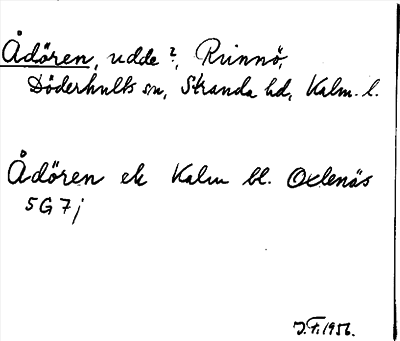 Ådören, udde?, Runnö,
Döderhults sn, Stranda hd, Kalm. l.
Ådören ek Kalm bl. Oxlenäs
5G7j
J.F. 1956.